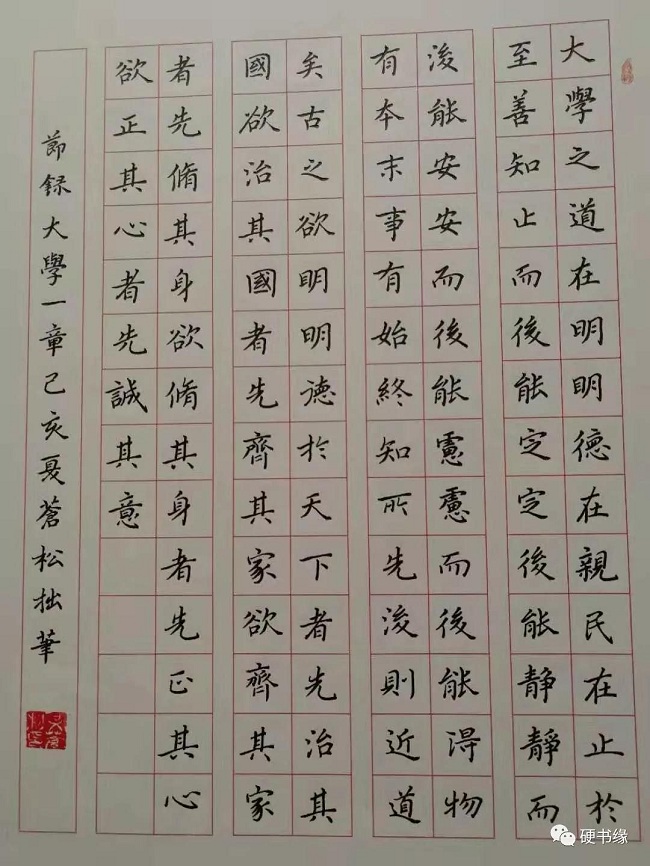 大學之道在明明德在親民在止於
至善知止而後能定定後能靜靜而
後能安安而後能慮慮而後能得物
有本末事有始終知所先後則近道
矣古之欲明明德於天下者先治其
國欲治其國者先齊其家欲齊其家
者先脩其身欲脩其身者先正其心
欲正其心者先誠其意
節録大學一章己亥夏蒼松拙筆
硬书缘